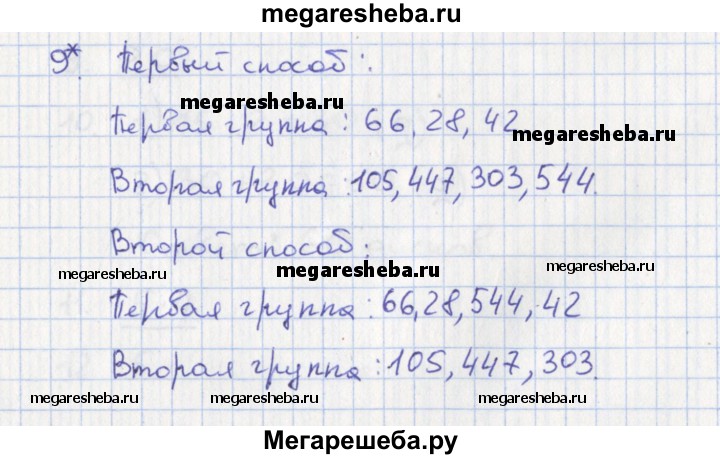 megaresheba.ru
9*. Первый способ:
megaresheba.ru
Первая группа: 66, 28, 42
megaresheba.ru
Вторая группа: 105, 447, 303, 544.
Второй способ:
megaresheba.ru megaresheba.ru megaresheba.ru
Первая группа: 66, 28, 544, 42
Вторая группа: 105, 447, 303.
megaresheba.ru megaresheba.ru megaresheba.ru
Мегарешеба.ру